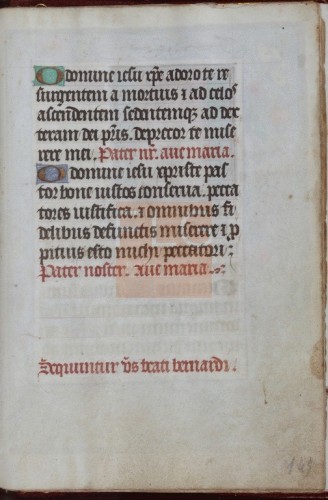 O domine iesu xp̄e adoro te re
surgentem a mortuis ⁊ ad celos
ascendentem sedentemq̄ ad dex
teram dei pr̄is. deprecor te mise
rere mei. Pater nr̄. aue maria.
O domine iesu xp̄riste pas
tor bone iustos conserua. pecca
tores iustifica. ⁊ omnibus fi
delibus defunctis miserere ⁊ p̄
pitius esto michi peccatori:
Pater noster. aue maria.
Sequuntur v̄s beati bernardi.
149